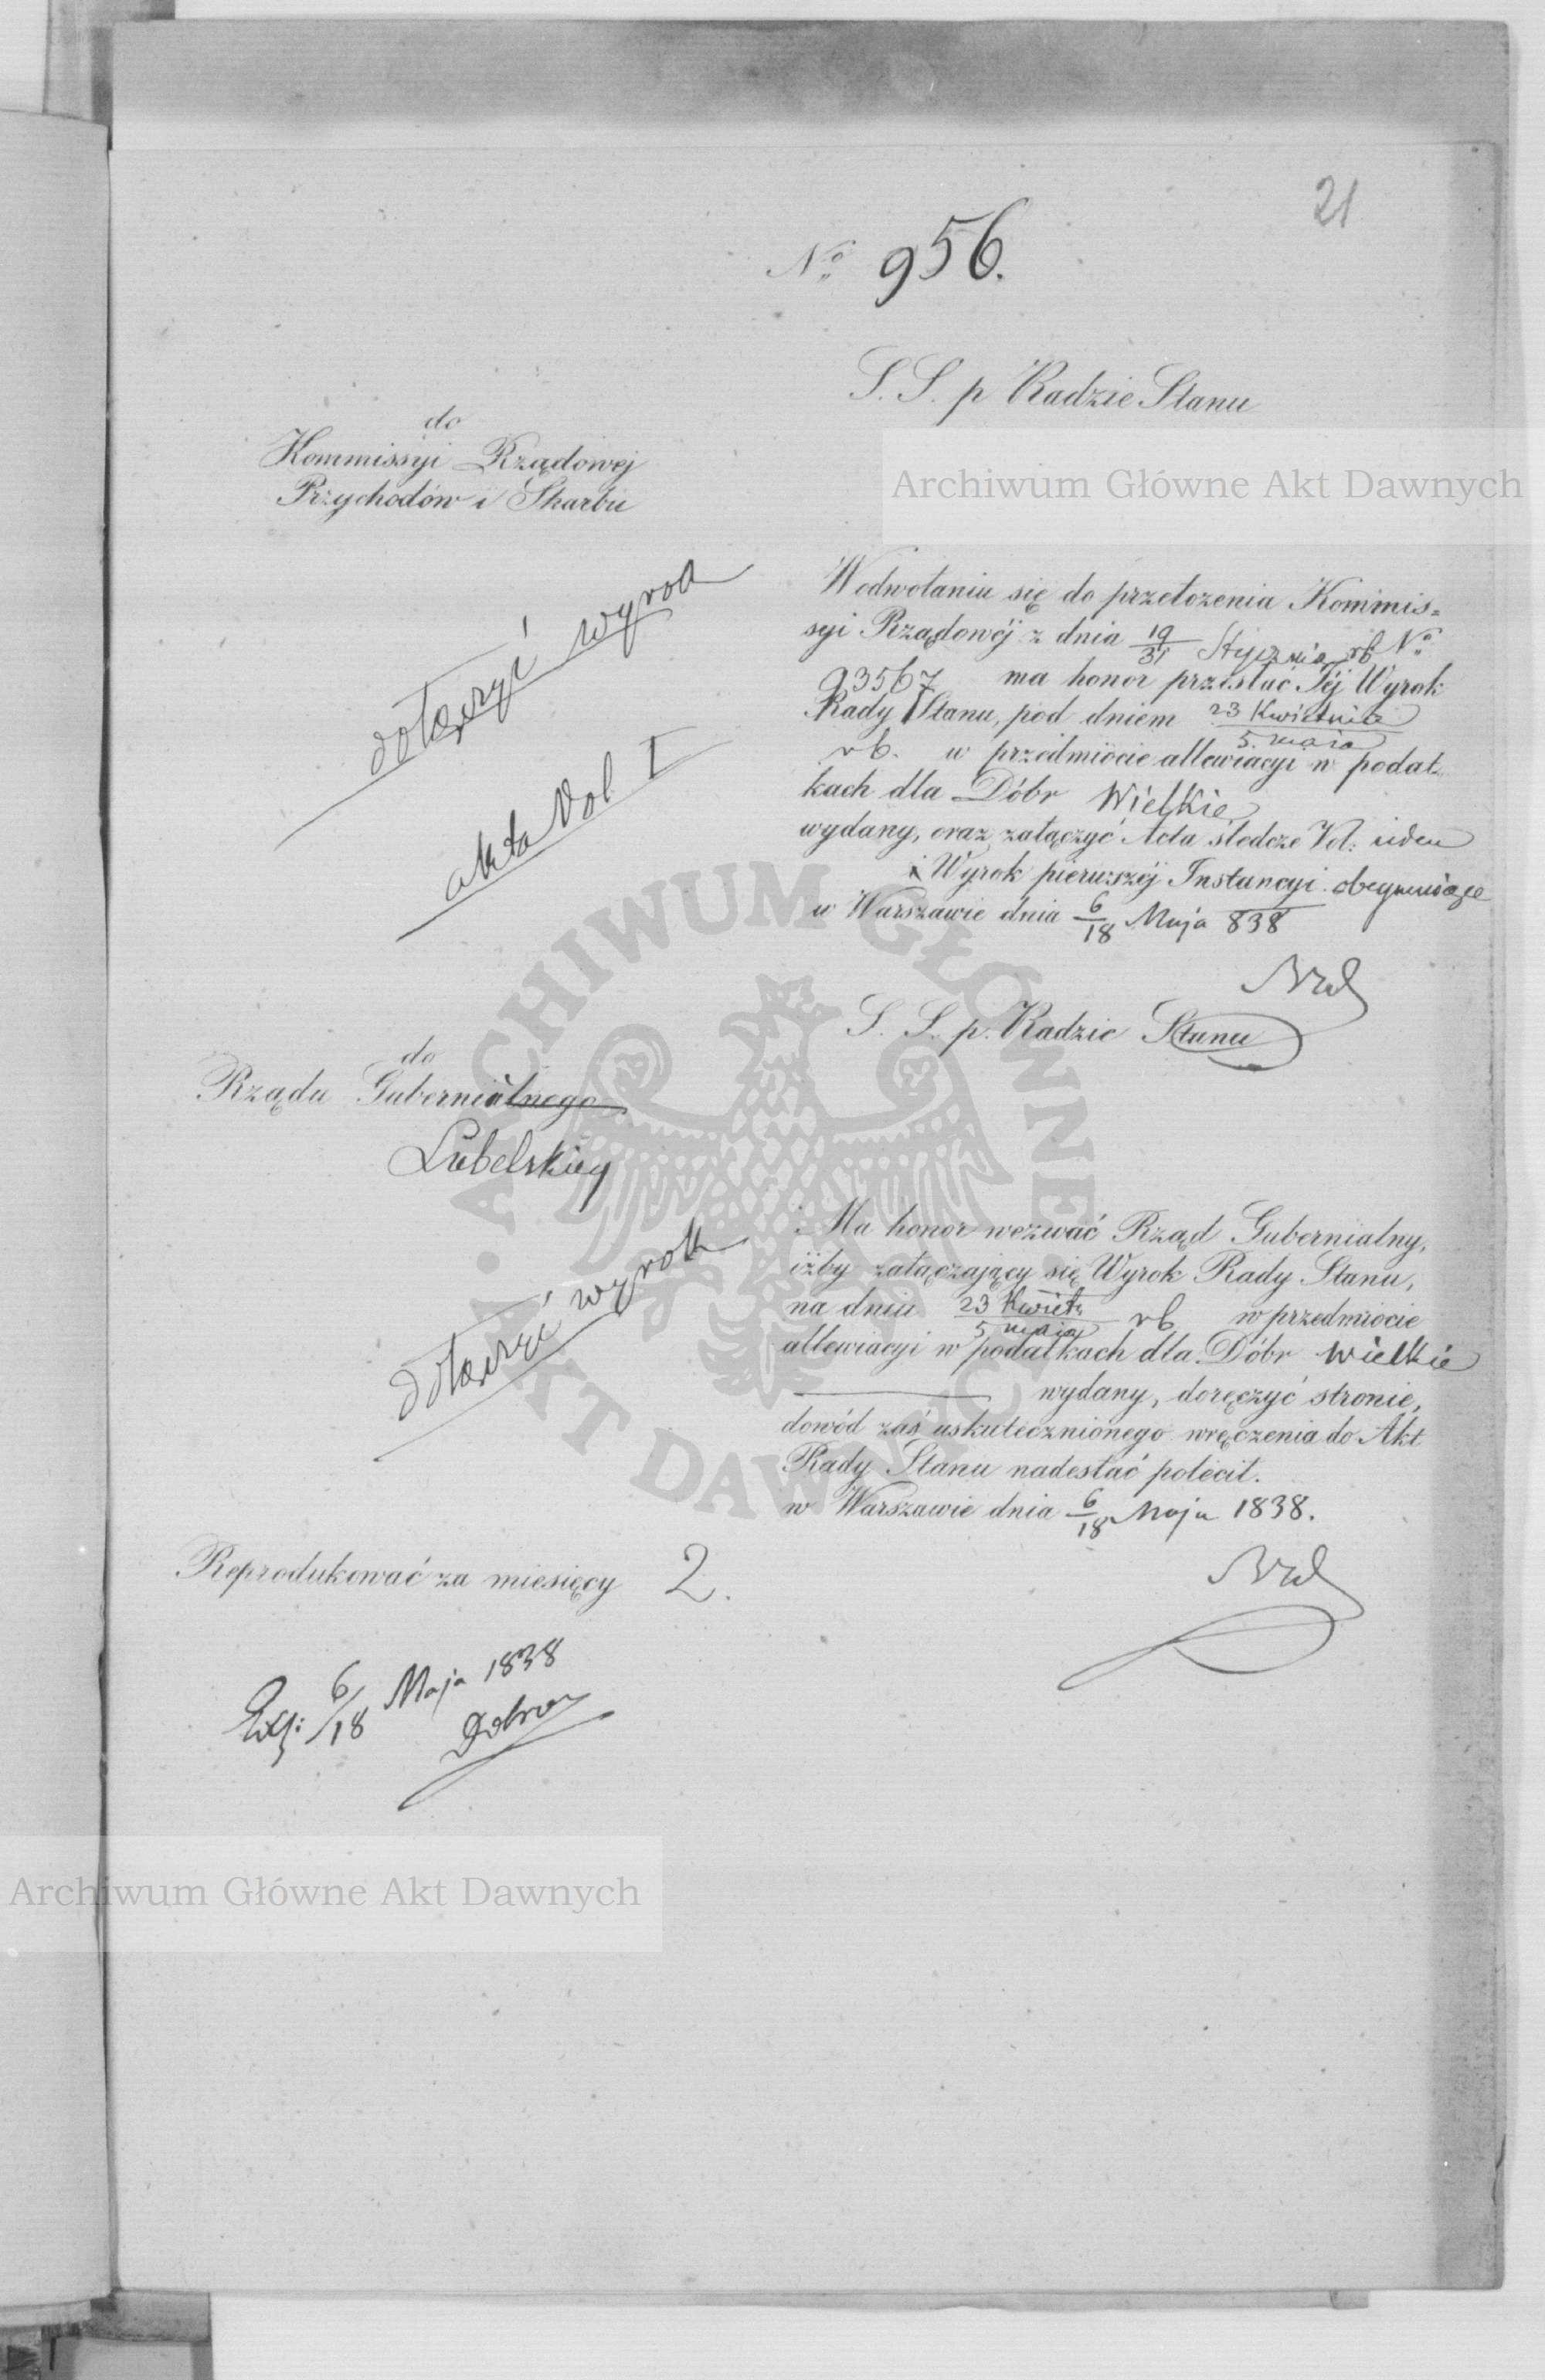 21
No 956.
S. S. p Radzie Stanu
do
Kommissyi Rządowej
Przychodów i Skarbu
dołączyć wyrok
akta Vol I
W odwołaniu się do przełożenia Kommis=
syi Rządowéj z dnia 19/31 Stycznia rb No
93567 ma honor przesłać Jéj Wyrok
Rady Stanu, pod dniem 23 Kwietnia/5 maja
rb. w przedmiocie allewiacyi w podat-
kach dla Dóbr Wielkie
wydany, oraz załączyć Acta śledcze Vol:
i Wyrok pierwszéj Instancyi obejmujące
w Warszawie dnia 6/18 Maja 838
S. S. p. Radzie Stanu
do
Rządu Gubernialnego
Lubelskiey
dołączyć wyrok
Ma honor wezwać Rząd Gubernialny,
iżby załączający się Wyrok Rady Stanu,
na dniu 23 Kwiet/5 maja rb w przedmiocie
allewiacyi w podatkach dla Dóbr Wielkie
wydany, doręczyć stronie,
dowód zaś uskutecznionego wręczenia do Akt
Rady Stanu nadesłać polecił.
w Warszawie dnia 6/18 Maja 1838.
Reprodukować za miesięcy 2.
6/18 Maja 1838
Archiwum Główne Akt Dawnych
Archiwum Główne Akt Dawnych
ARCHIWUM GŁÓWNE AKT DAWNYCH